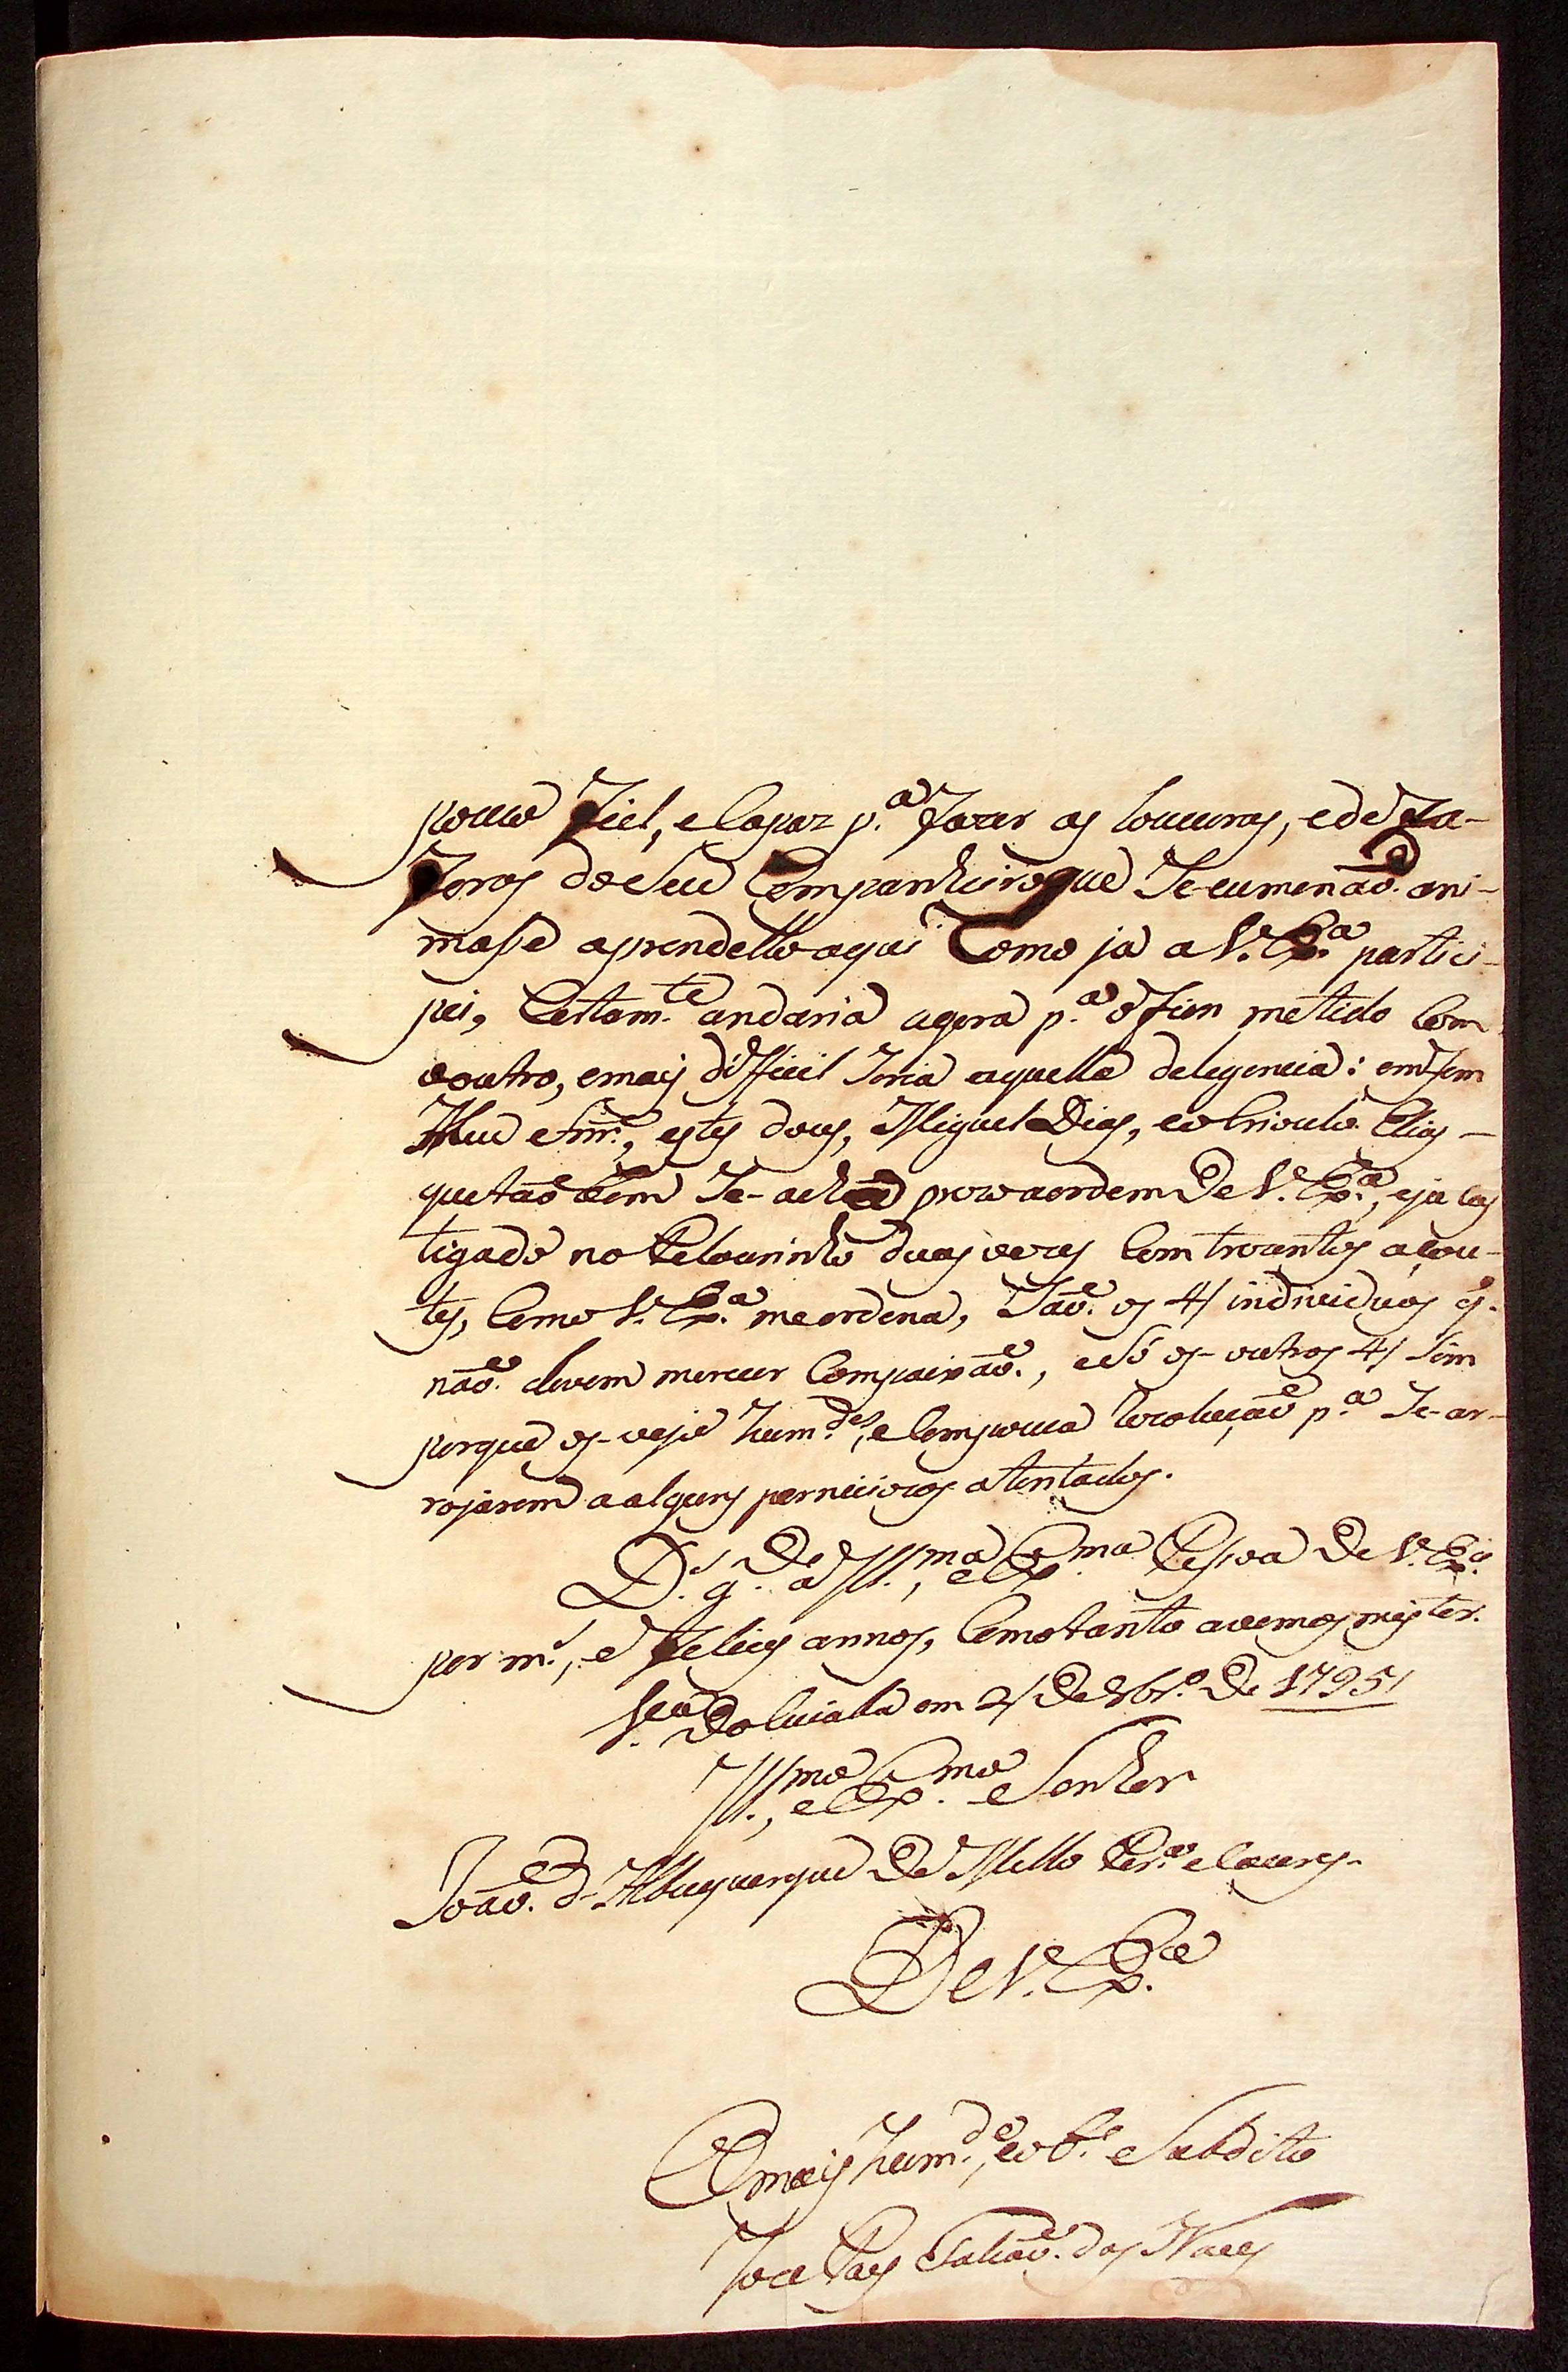 pouco fiel, e Capaz p.ª fazer as loucuras, e de za-
foros do seu Companheiro que se eu me não ani-
masse a prendello aqui Como ja a V. Ex.ª partici-
pei, Certam.te andaria agora p.ª o fim metido Com
o outro, e mais difficil seria aquella delegencia: em fim
Meu Snr., estes dous, Miguel Dias, e o Crioulo Elias
que tão bem se-acha prezo a ordem De V. Ex.ª, e ja cas
tigado no Pelourinho duas vezes Com trezentos açou-
tes, Como V. Ex.ª me ordena, São os 4/ individuos q.
não devem merecer Compaixão., e Só os-outros 4/ Sim
porque os-vejo hum.des, e Com pouca rezolução p.ª Se-ar-
rojarem a alguns perniciozos atentados.
D.s g.de a Ill.ma, e Ex.ma Pessoa De V. Ex.ª
por m.s, e felices annos, Como tanto avemos mister.
V.ª do Cuiabá em 2/ De 8br.º De 1795/
Ill.mo, e Ex.mo Senhor
João d'Albuquerque De Mello Per.ª e Caceres
De V. Ex.ª
O mais hum.de, e ob.e Subdito
Joze Paes Falcão das Neves